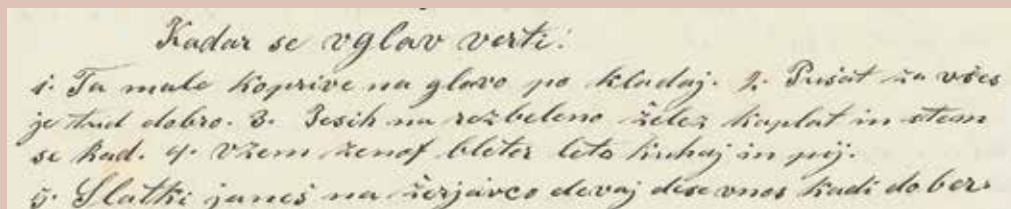 Kadar se vglav verti:
1. Ta male koprive na glavo po kladaj. 2. Pušat za všes
je tud dobro. 3. Jesih na rezbeleno želez kaplat in stem
se kad. 4. Vzem ženof bleter leto kuhaj in pij.
5. Slatki janeš na žerjavco devaj dese vnos kadi dober.